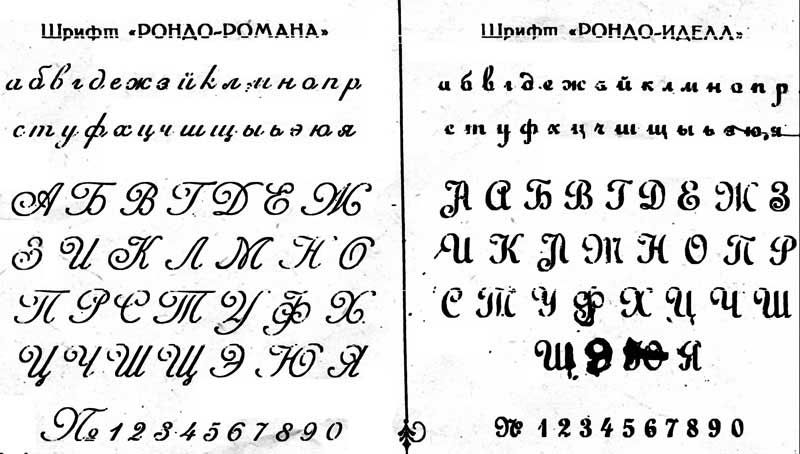 Шрифт «РОНДО-РОМАНА»
а б в г д е ж з й к л м н о п р
с т у ф х ц ч ш щ ы ь э ю я
А Б В Г Д Е Ж
З И К Л М Н О
П Р С Т У Ф Х
Ц Ч Ш Щ Э Ю Я
№ 1 2 3 4 5 6 7 8 9 0
Шрифт «РОНДО-ИДЕАЛ»
а б в г д е ж з й к л м н о п р
с т у ф х ц ч ш щ ы ь э ю, я
А А Б В Г Д Е Ж З
И К Л М Н О П Р
С Т У Ф Х Ц Ч Ш
Щ Э Ю Я
№ 1 2 3 4 5 6 7 8 9 0